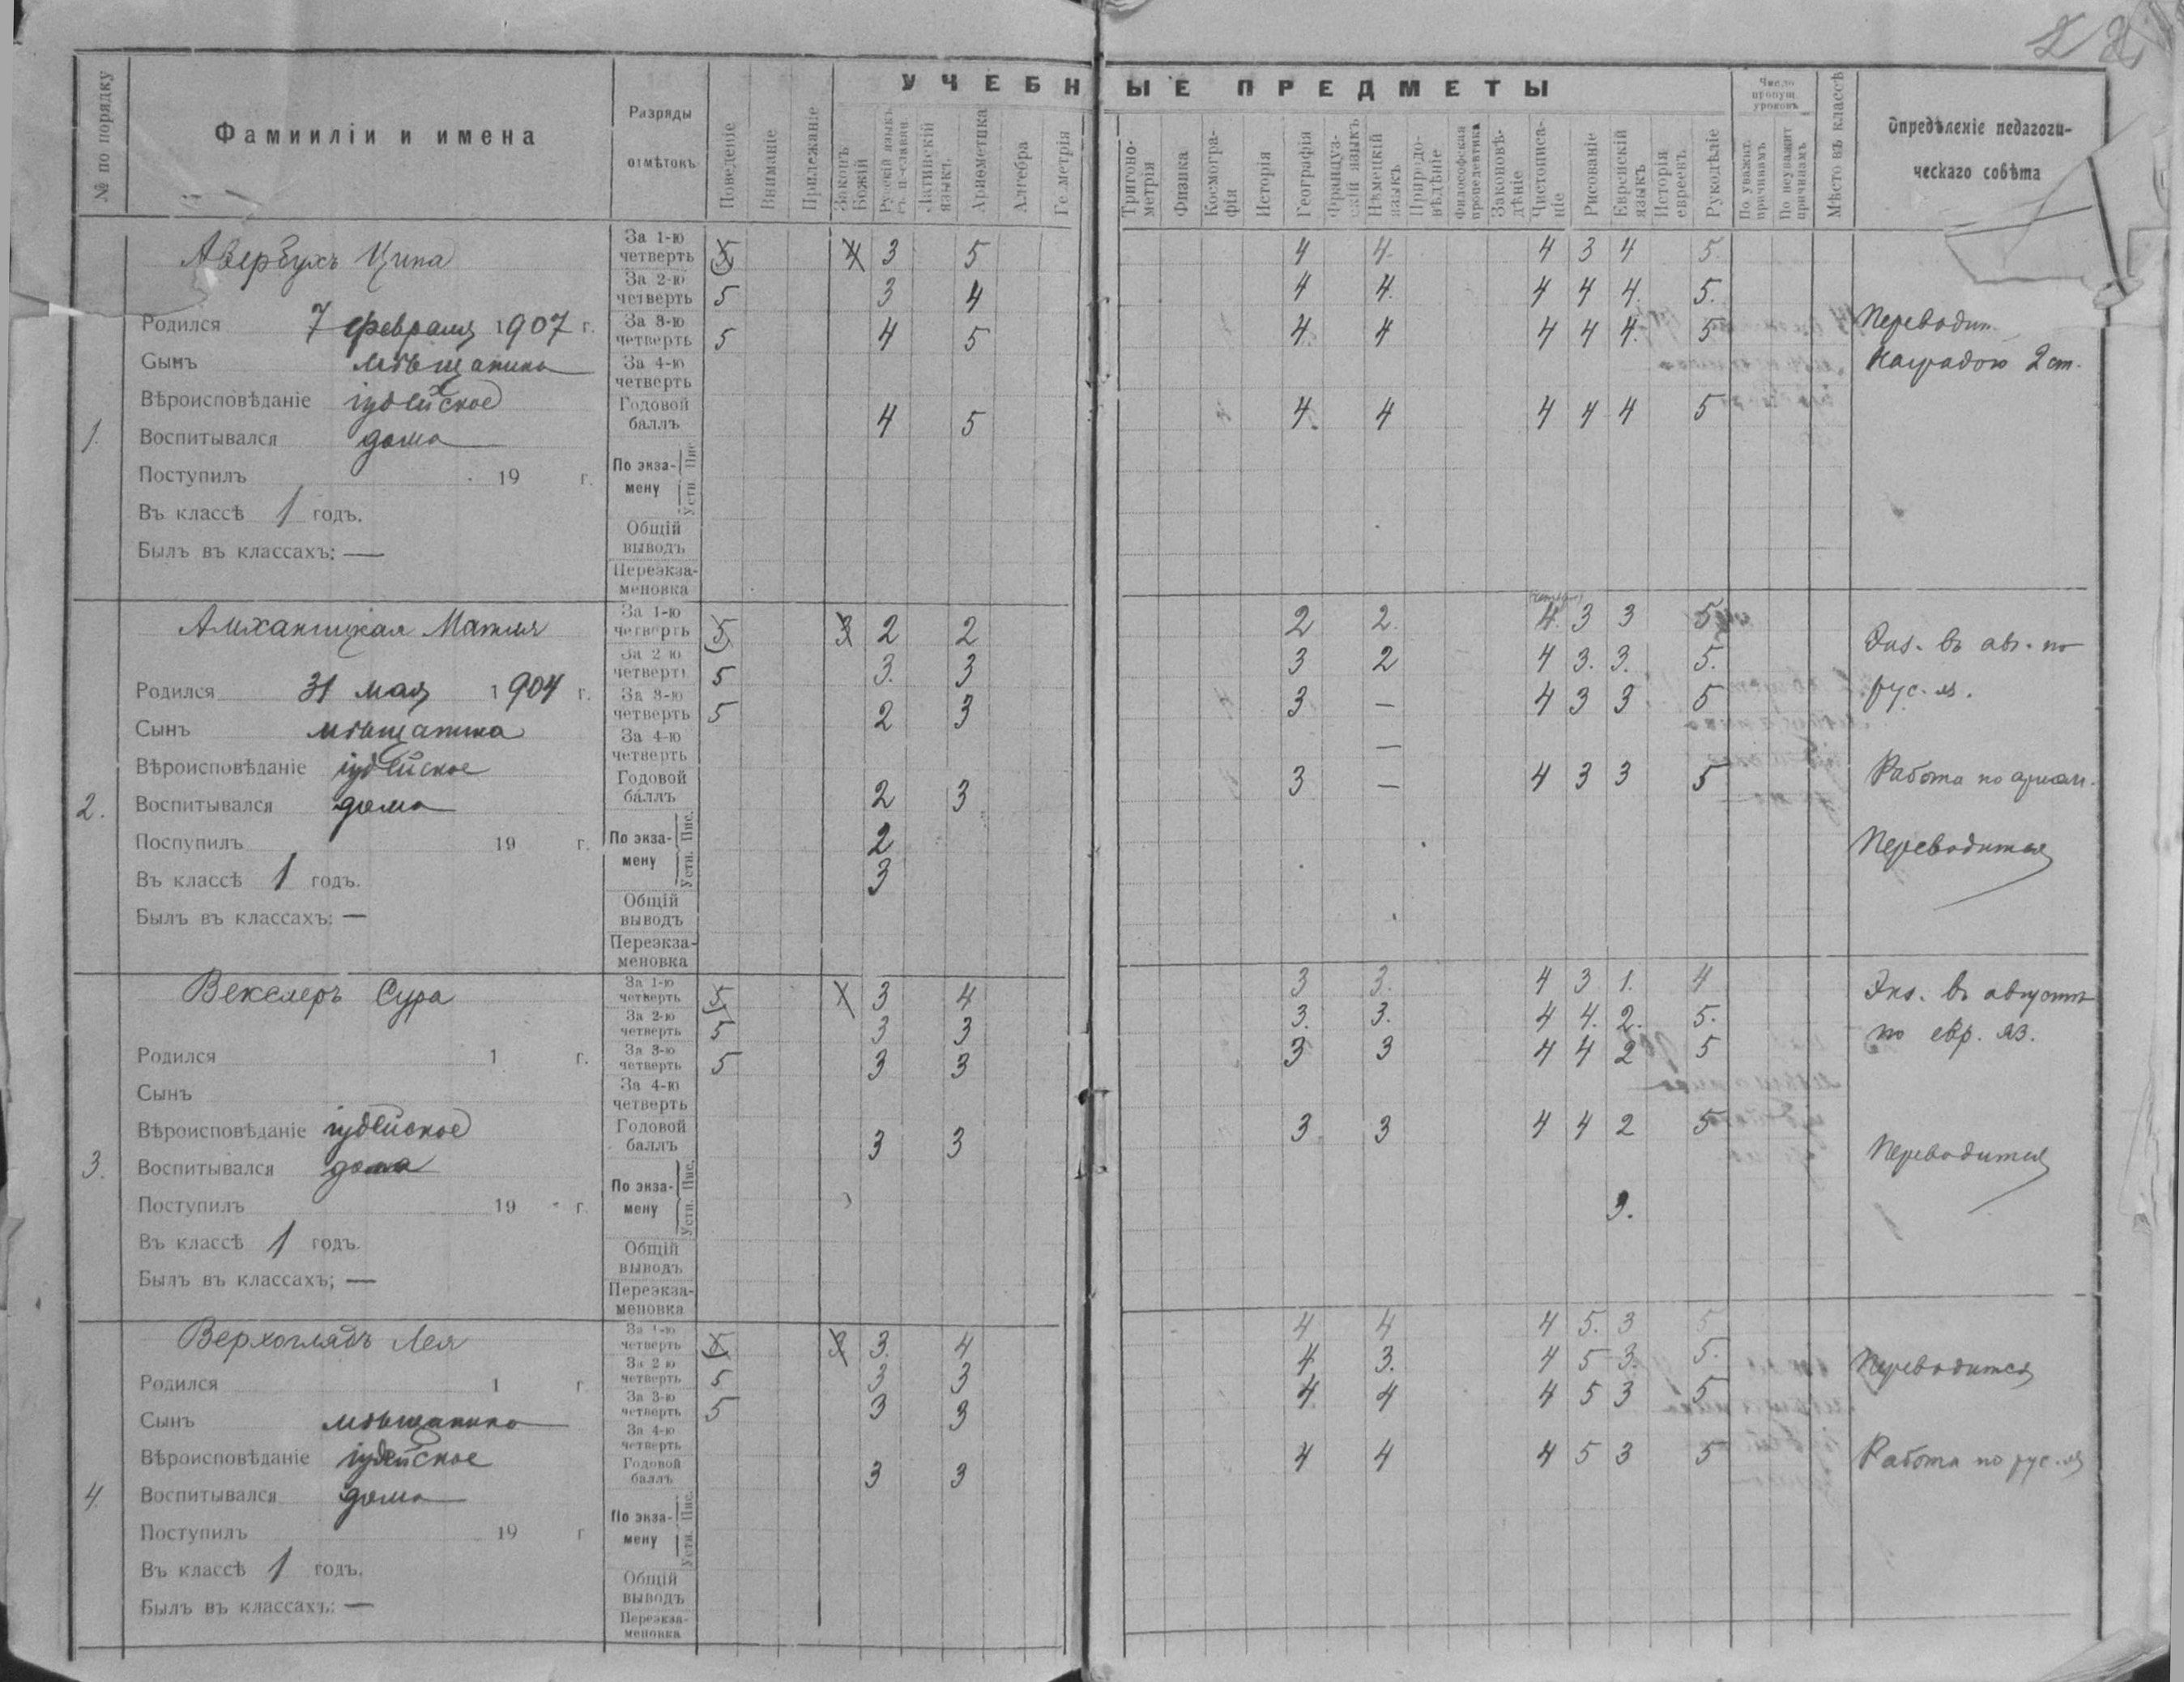 УЧЕБНЫЕ ПРЕДМЕТЫ
№ по порядку
Фамииліи и имена
Разряды
отмѣтокъ
Поведеніе
Вниманіе
Прилежаніе
Законъ Божій
Русскій языкъ
Латинскій языкъ
Ариѳметика
Алгебра
Геметрія
Тригоно-метрія
Физика
Космогра-фія
Исторія
Географія
Француз-скій языкъ
Нѣмецкій языкъ
Природо-вѣдѣніе
Философская пропедевтика
Законовѣ-дѣніе
Чистописа-ніе
Рисованіе
Еврейскій языкъ
Исторія евреевъ
Рукодѣліе
Число пропущ. уроковъ
По уважит. причинамъ
По неуважит причинамъ
Мѣсто въ классѣ
Опредѣленіе педагоги-
ческаго совѣта
1.
Авербухъ Ципа
Родился 7 февраля 1907 г.
Сынъ мѣщанина
Вѣроисповѣданіе іудейское
Воспитывался дома
Поступилъ 19 г.
Въ классѣ 1 годъ.
Былъ въ классахъ: —
За 1-ю четверть 5 4 3 5 4 4 4 3 4 5
За 2-ю четверть 5 3 4 4 4 4 4 4 5.
За 3-ю четверть 5 4 5 4 4 4 4 4 5
За 4-ю четверть
Годовой баллъ 4 5 4 4 4 4 4 5
По экза-мену Пис. Устн.
Общій выводъ
Переэкза-меновка
Переводит.
Наградою 2 ст.
2.
Родился 31 мая 1904 г.
Сынъ мѣщанина
Вѣроисповѣданіе іудейское
Воспитывался дома
Поспупилъ 19 г.
Въ классѣ 1 годъ.
Былъ въ классахъ: —
За 1-ю четверть 5 3 2 2 2 2 4 3 3 5
За 2-ю четверть 5 3 3 3 2 4 3. 3. 5.
За 3-ю четверть 5 2 3 3 — 4 3 3 5
За 4-ю четверть —
Годовой баллъ 2 3 3 — 4 3 3 5
По экза-мену Пис. 2
Устн. 3
Общій выводъ
Переэкза-меновка
Экз. въ авг. по
рус. я.
Работа по ариѳм.
Переводится
3.
Векслеръ Сура
Родился 1 г.
Сынъ
Вѣроисповѣданіе іудейское
Воспитывался дома
Поступилъ 19 г.
Въ классѣ 1 годъ.
Былъ въ классахъ; —
За 1-ю четверть 5 3 4 3 3. 4 3 1. 4
За 2-ю четверть 5 3 3 3. 3. 4 4. 2. 5.
За 3-ю четверть 5 3 3 3 3 4 4 2 5
За 4-ю четверть
Годовой баллъ 3 3 3 3 4 4 2 5
По экза-мену Пис. Устн. 3.
Общій выводъ
Переэкза-меновка
Экз. въ августѣ
по евр. яз.
Переводится
4.
Верхоглядъ Лея
Родился 1 г.
Сынъ мѣщанина
Вѣроисповѣданіе іудейское
Воспитывался дома
Поступилъ 19 г
Въ классѣ 1 годъ.
Былъ въ классахъ: —
За 1-ю четверть 5 3 3 4 4 4 4 5. 3 5
За 2-ю четверть 5 3 3 4 3. 4 5 3. 5.
За 3-ю четверть 5 3 3 4 4 4 5 3 5
За 4-ю четверть
Годовой баллъ 3 3 4 4 4 5 3 5
По экза-мену Пис. Устн.
Общій выводъ
Переэкза-меновка
Переводится
Работа по рус. яз